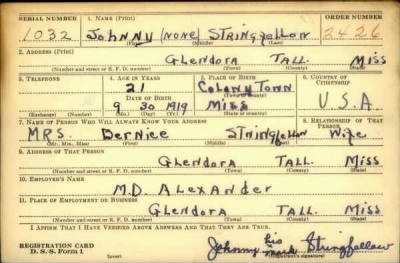 SERIAL NUMBER 1. NAME (Print) ORDER NUMBER
1032 Johnny (none) Stringfellow 2426
(First) (Middle) (Last)
2. ADDRESS (Print)
Glendora Tall. Miss
(Number and street or R. F. D. number) (Town) (County) (State)
3. TELEPHONE 4. AGE IN YEARS 5. PLACE OF BIRTH 6. COUNTRY OF CITIZENSHIP
21 Colony Town
DATE OF BIRTH (Town or county)
9 30 1919 Miss U.S.A.
(Exchange) (Number) (Mo.) (Day) (Yr.) (State or country)
7. NAME OF PERSON WHO WILL ALWAYS KNOW YOUR ADDRESS 8. RELATIONSHIP OF THAT PERSON
MRS. Bernice Stringfellow Wife
(Mr., Mrs., Miss) (First) (Middle) (Last)
9. ADDRESS OF THAT PERSON
Glendora Tall. Miss
(Number and street or R. F. D. number) (Town) (County) (State)
10. EMPLOYER'S NAME
M.D. Alexander
11. PLACE OF EMPLOYMENT OR BUSINESS
Glendora Tall. Miss
(Number and street or R. F. D. number) (Town) (County) (State)
I AFFIRM THAT I HAVE VERIFIED ABOVE ANSWERS AND THAT THEY ARE TRUE.
REGISTRATION CARD
D. S. S. Form 1
Johnny his mark Stringfellow
(Registrant's signature)